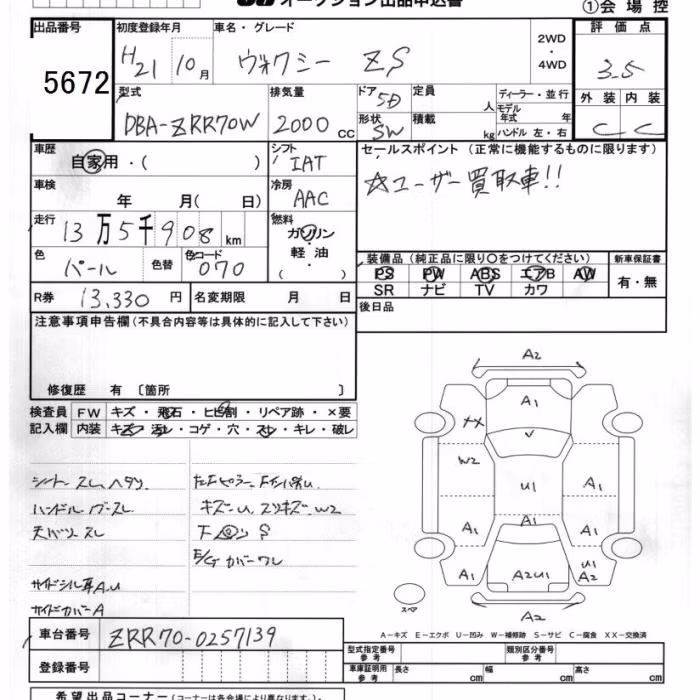 オークション出品申込書
①会場控
出品番号
5672
初度登録年月
H21 10月
車名・グレード
ヴォクシー ZS
2WD
・
4WD
評価点
3.5
外装 内装
C C
型式
DBA-ZRR70W
排気量
2000 cc
ドア 5D
形状 SW
定員 人
積載 kg
ディーラー・並行
モデル年式 年
ハンドル 左・右
車歴
自家用・( )
シフト
IAT
車検
年 月( 日)
冷房
AAC
走行
13万5千908km
燃料
ガソリン
軽油
( )
色
パール
色替
色コード
070
R券 13,330円
名変期限 月 日
セールスポイント (正常に機能するものに限ります)
☆ユーザー買取車!!
装備品 (純正品に限り○をつけてください)
PS PW ABS エアB AW
SR ナビ TV カワ
新車保証書
有・無
後日品
注意事項申告欄(不具合内容等は具体的に記入して下さい)
修復歴 有 〔箇所 〕
検査員記入欄
FW キズ・飛石・ヒビ割・リペア跡・×要
内装 キズ・汚レ・コゲ・穴・スレ・キレ・破レ
シート スレ、ヘタリ
ハンドル
スレ
天バリ スレ
サイドシル耳A、U
サイドカバーA
キズ・U スリキズ・W2
下回り S
E/G カバーワレ
A2
A1
XX
W2
U1
A1
A1
A1
A1
A1
A1
A2U1
U1
A2
A2
スペア
A-キズ E-エクボ U-凹み W-補修跡 S-サビ C-腐食 XX-交換済
車台番号
ZRR70-0257139
登録番号
型式指定番号 参考
類別区分番号 参考
車庫証明用 参考
長さ cm
幅 cm
高さ cm
希望出品コーナー (コーナーは各会場により異なります)